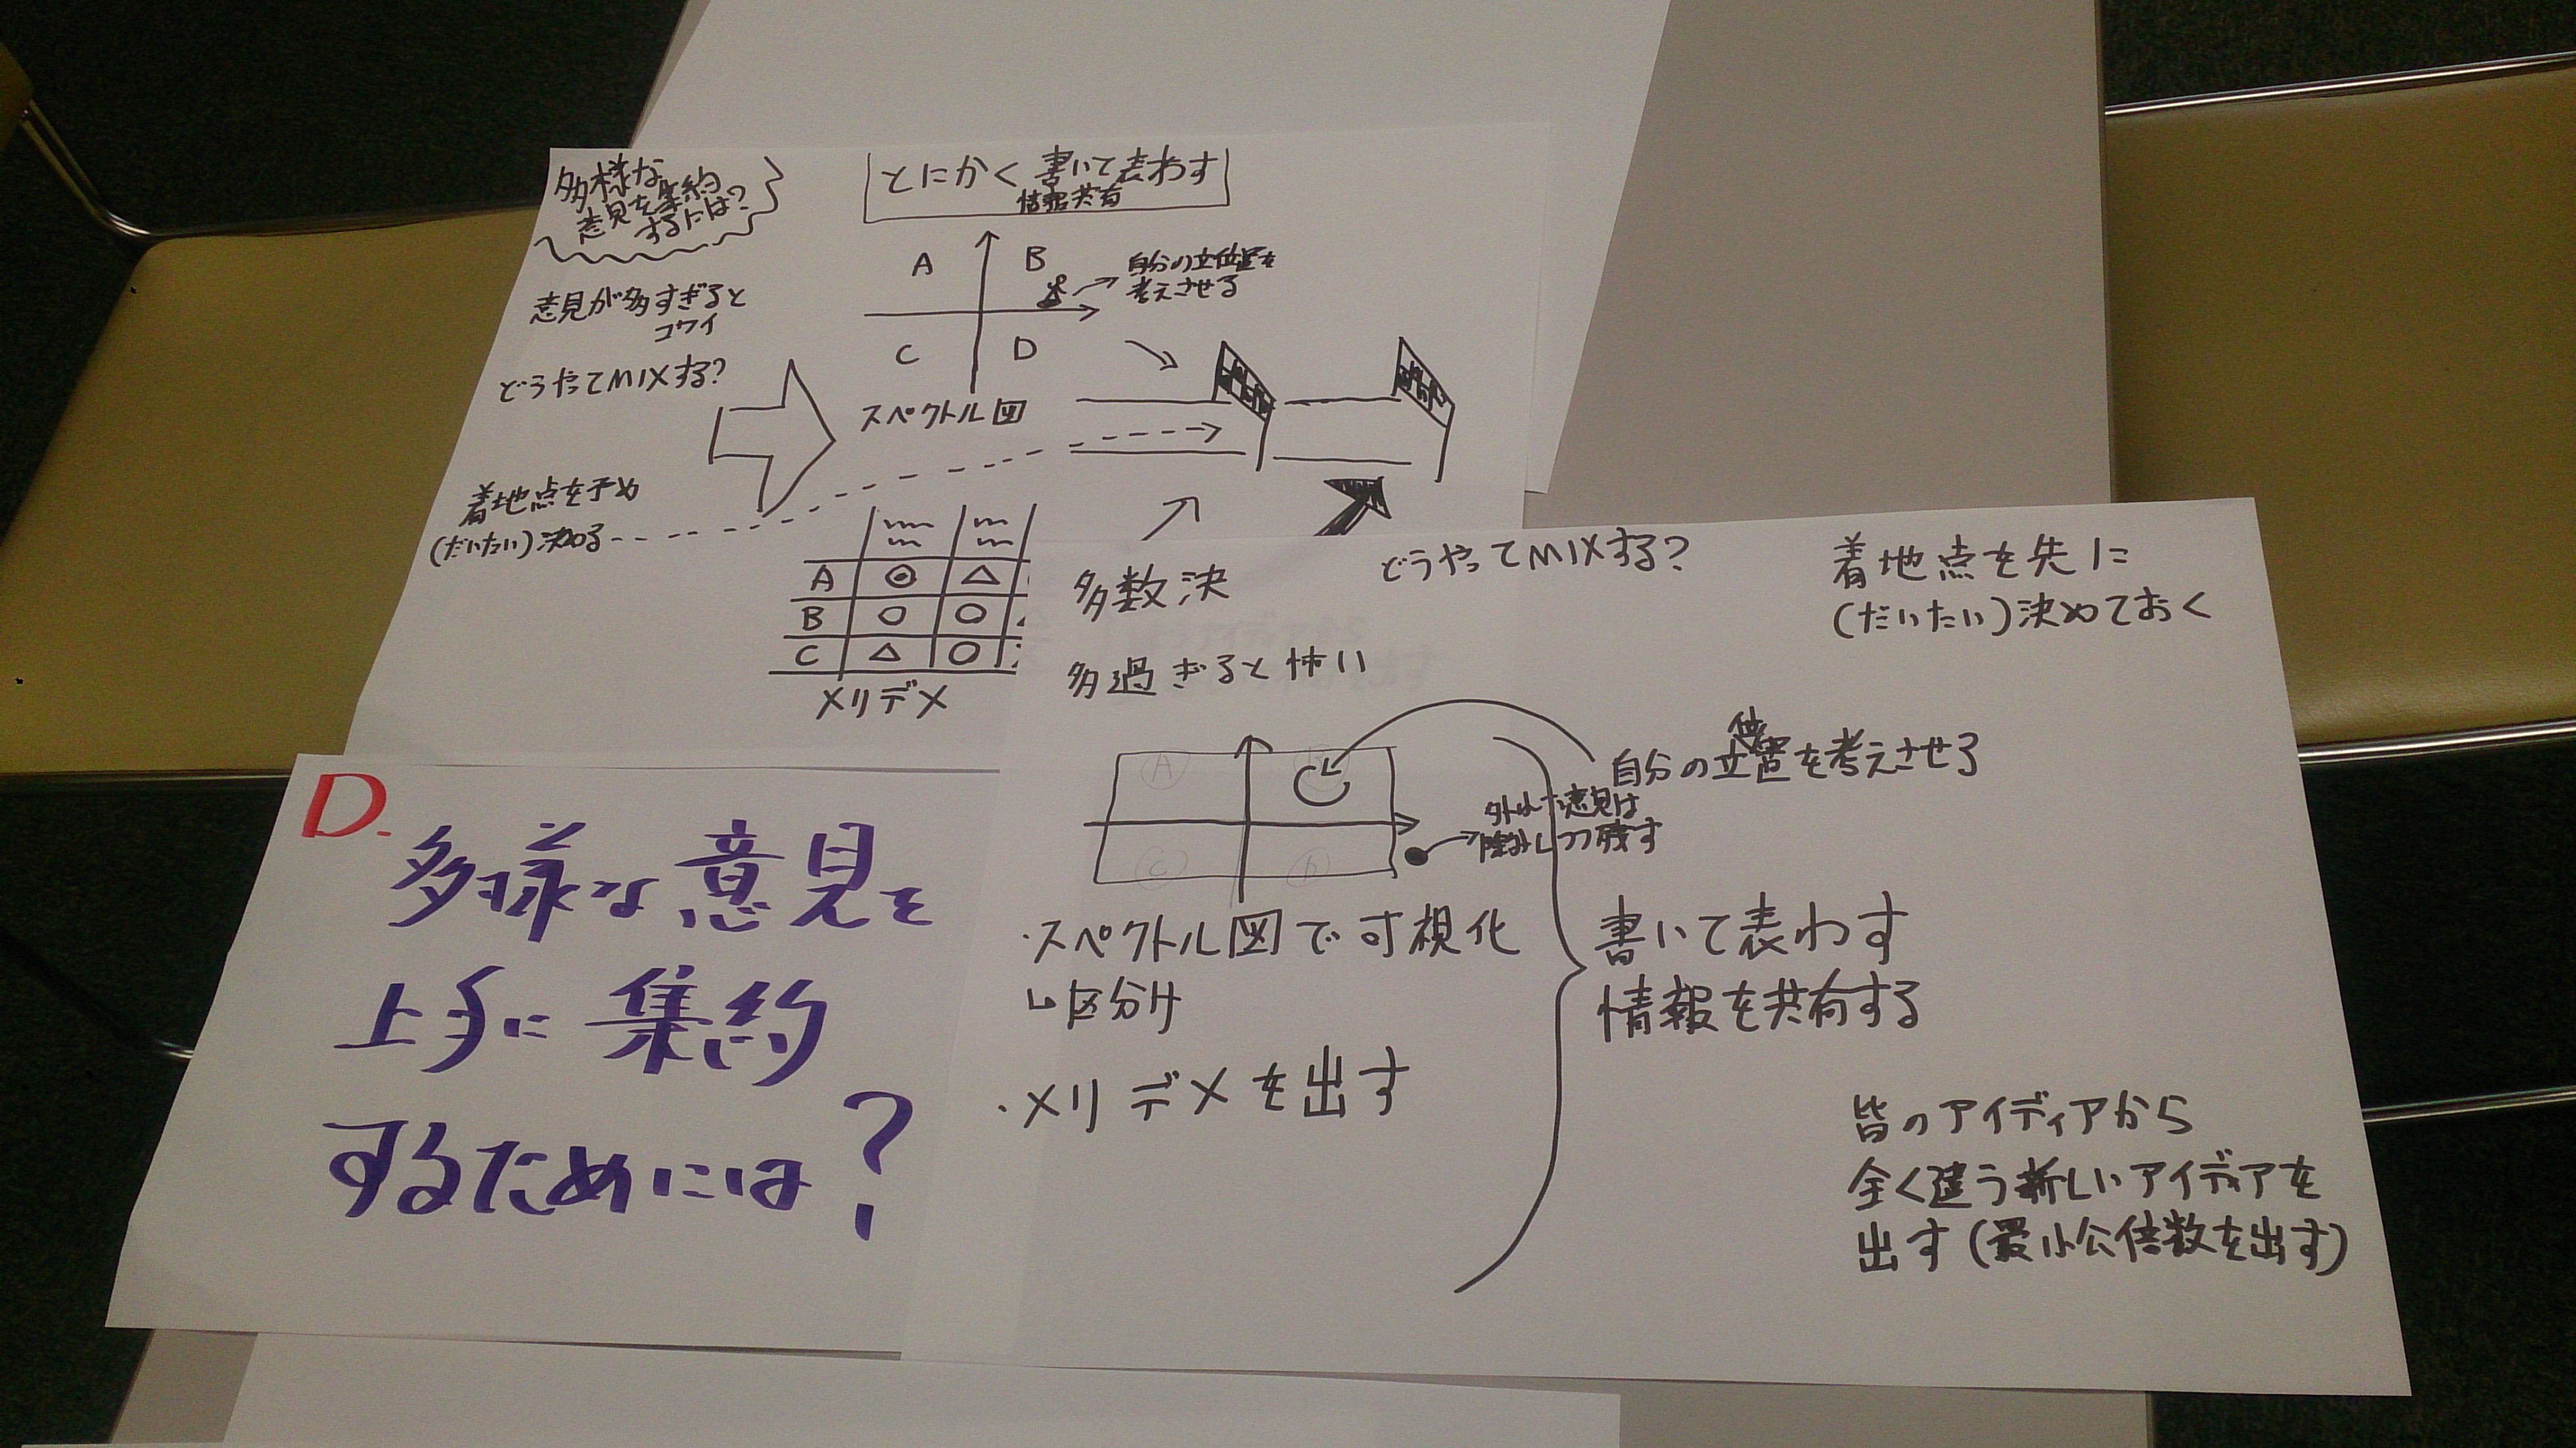 多様な
意見を集約
するには?
とにかく書いて表わす
情報共有
意見が多すぎると
コワイ
どうやってMIXする?
着地点を予め
(だいたい)決める
A
B
自分の立位置を
考えさせる
C
D
スペクトル図
A ◎ △
B ○ ○
C △ ○
メリデメ
D.
多様な意見を
上手に集約
するためには?
多数決
どうやってMIXする?
着地点を先に
(だいたい)決めておく
多過ぎると怖い
自分の立位置を考えさせる
A
C
D
外れた意見は
除外しつつ残す
・スペクトル図で可視化
↳区分け
・メリデメを出す
書いて表わす
情報を共有する
皆のアイディアから
全く違う新しいアイディアを
出す(最小公倍数を出す)